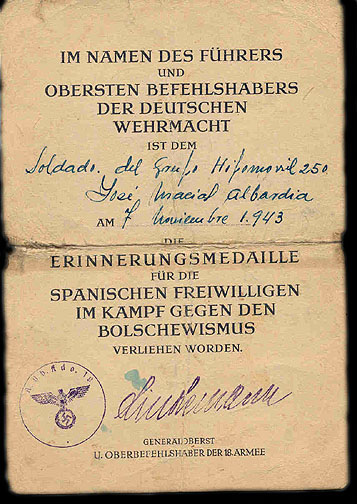 IM NAMEN DES FÜHRERS
UND
OBERSTEN BEFEHLSHABERS
DER DEUTSCHEN
WEHRMACHT
IST DEM
Soldado. del Grupo Hipomovil 250
José Macial Albardia
AM 7 Noviembre 1.943
DIE
ERINNERUNGSMEDAILLE
FÜR DIE
SPANISCHEN FREIWILLIGEN
IM KAMPF GEGEN DEN
BOLSCHEWISMUS
VERLIEHEN WORDEN.
Lindemann
GENERALOBERST
U. OBERBEFEHLSHABER DER 18. ARMEE